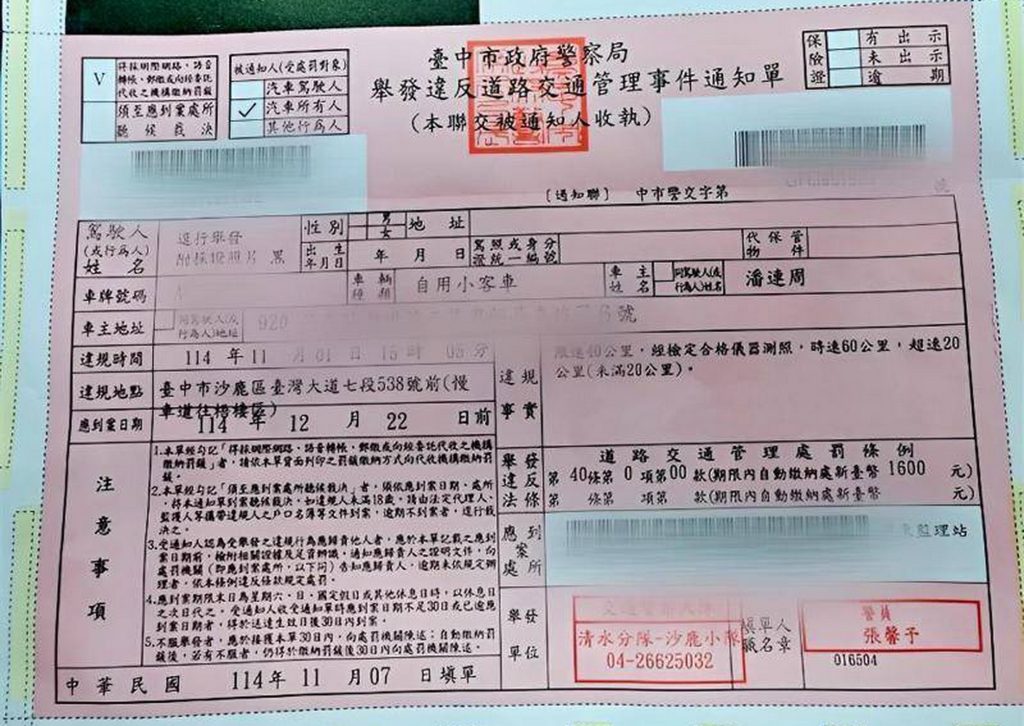 臺中市政府警察局
舉發違反道路交通管理事件通知單
(本聯交被通知人收執)
V 得採網際網路、語音轉帳、郵繳或向經委託代收之機構繳納罰鍰
須至應到案處所聽候裁決
被通知人(受處罰對象)
汽車駕駛人
✓ 汽車所有人
其他行為人
保險證
有出示
未出示
逾期
[通知聯] 中市警交字第 號
駕駛人(或行為人)姓名
逕行舉發
附採證照片
性別 男 女
地址
出生年月日 年 月 日
駕照或身分證統一編號
代保管物件
車牌號碼
車輛種類 自用小客車
車主姓名 同駕駛人(或行為人)姓名 潘連周
車主地址 同駕駛人(或行為人)地址 920 號
違規時間 114 年 11 月 01 日
違規地點 臺中市沙鹿區臺灣大道七段538號前(慢車道往梧棲區)
應到案日期 114 年 12 月 22 日前
違規事實
限速40公里,經檢定合格儀器測照,時速60公里,超速20公里(未滿20公里)。
注意事項
1.本單經勾記「得採網際網路、語音轉帳、郵繳或向經委託代收之機構繳納罰鍰」者,請依本單背面列印之罰鍰繳納方式向代收機構繳納罰鍰。
2.本單經勾記「須至應到案處所聽候裁決」者,須依應到案日期、處所,持本通知單到案聽候裁決。如違規人未滿18歲,請由法定代理人、監護人等攜帶違規人之戶口名簿等文件到案,逾期不到案者,逕行裁決之。
3.受通知人認為受舉發之違規行為應歸責他人者,應於本單記載之應到案日期前,檢附相關證據及足資辨識、通知應歸責人之證明文件,向處罰機關(即應到案處所,以下同)告知應歸責人,逾期未依規定辦理者,依本條例違反條款規定處罰。
4.應到案期限末日為星期六、日、國定假日或其他休息日時,以休息日之次日代之。受通知人收受通知單時應到案日期不足30日或已逾應到案日期者,得於送達生效日後30日內到案。
5.不服舉發者,應於接獲本單30日內,向處罰機關陳述;自動繳納罰鍰後,若有不服者,仍得於繳納罰鍰後30日內向處罰機關陳述。
舉發違反法條
道路交通管理處罰條例
第 40條第 0 項第00 款(期限內自動繳納處新臺幣 1600 元)
第 條第 項第 款(期限內自動繳納處新臺幣 元)
應到案處所
監理站
舉發單位
清水分隊-沙鹿小隊
04-26625032
填單人職名章
警員
張馨予
016504
中華民國 114年 11 月07 日填單